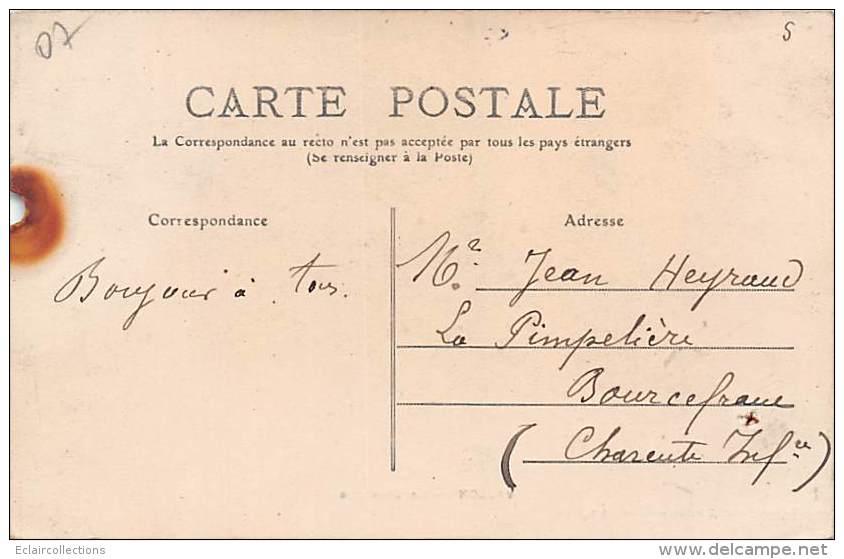 07
S
CARTE POSTALE
La Correspondance au recto n'est pas acceptée par tous les pays étrangers
(Se renseigner à la Poste)
Correspondance
Adresse
Bonjour à tous.
Mr. Jean Heyraud
La Pimpelière
Bourcefranc
(Charente Infre)
Eclaircollections
delcampe.net